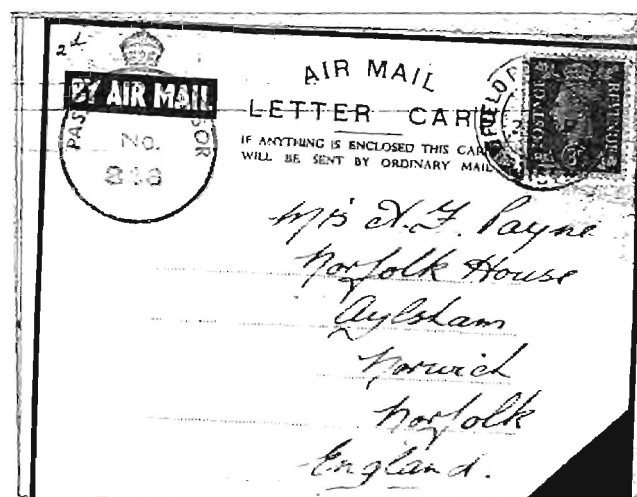 2d
BY AIR MAIL
PAS
SOR
No.
AIR MAIL
LETTER CARD
IF ANYTHING IS ENCLOSED THIS CARD
WILL BE SENT BY ORDINARY MAIL
FIELD P
POSTAGE
REVENUE
3d
Mrs A. F. Payne
Norfolk House
Aylsham
Norwich
Norfolk
England.